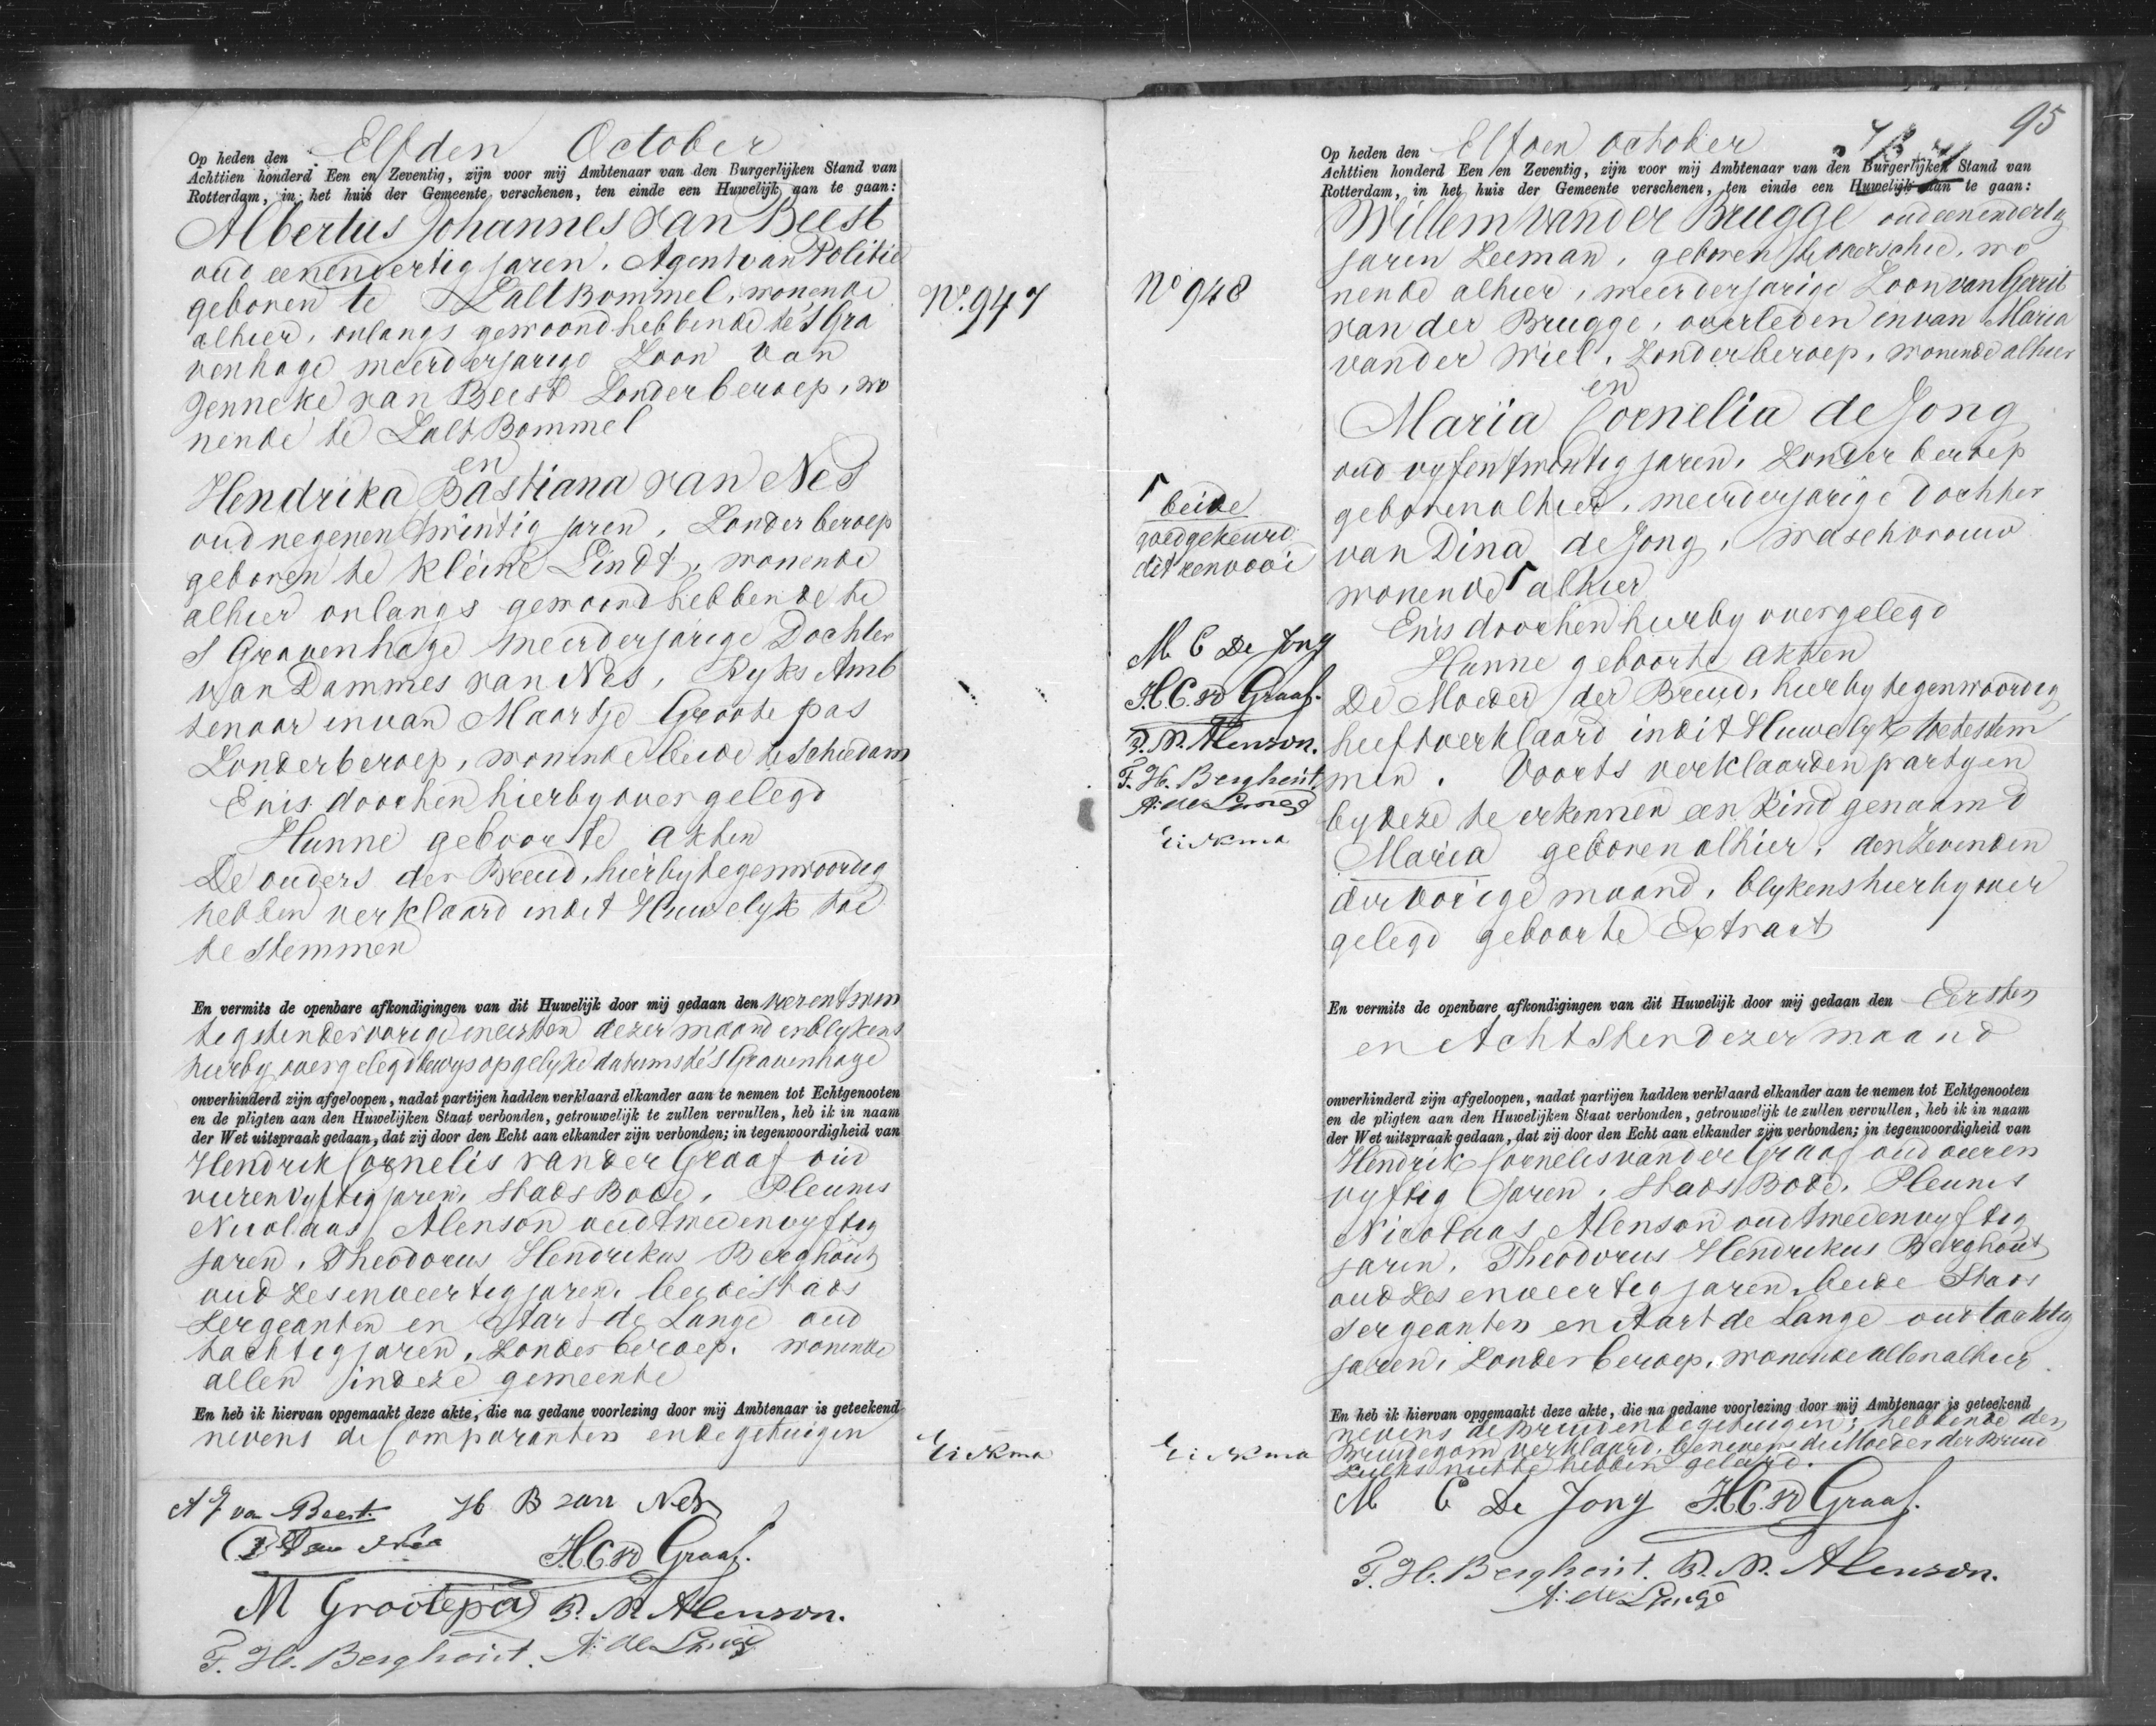 Op heden den Elfden October
Achttien honderd Een en Zeventig, zijn voor mij Ambtenaar van den Burgerlijken Stand van
Rotterdam, in het huis der Gemeente verschenen, ten einde een Huwelijk aan te gaan:
Albertus Johannes van Beest
oud eenendertig jaren, Agent van Politie
geboren te Zalt Bommel, wonende
alhier, onlangs gewoond hebbende te 'S Gra
venhage meerderjarige Zoon van
Jenneke van Beest Zonder beroep, wo
nende te Zalt Bommel
en
Hendrika Bastiana van Nes
oud negenentwintig jaren, Zonder beroep
geboren te Kleine Lindt, wonende
alhier onlangs gewoond hebbende te
S Gravenhage meerderjarige Dochter
van Dammes van Nes, Ryks Amb
tenaar en van Maartje Grootepas
Zonder beroep, wonende beide te Schiedam
En is door hen hierby overgelegd
Hunne geboorte akten
De ouders der Bruid, hierby tegenwoordig
hebben verklaard in dit Huwelyk toe
te stemmen
En vermits de openbare afkondigingen van dit Huwelijk door mij gedaan den vierentwin
tigsten der vorige en eersten dezer maand en blykens
hierby overgelegd bewys op gelyke datums te 's Gravenhage
onverhinderd zijn afgeloopen, nadat partijen hadden verklaard elkander aan te nemen tot Echtgenooten
en de pligten aan den Huwelijken Staat verbonden, getrouwelijk te zullen vervullen, heb ik in naam
der Wet uitspraak gedaan, dat zij door den Echt aan elkander zijn verbonden; in tegenwoordigheid van
Hendrik Cornelis van der Graaf oud
vierenvyftig jaren, Stads Bode, Pleunis
Nicolaas Alenson oud tweeenvyftig
jaren, Theodorus Hendrikus Berghout
oud zesenveertig jaren, beide Stads
Sergeanten en Aart de Lange oud
tachtig jaren, Zonder beroep, wonende
allen in deze gemeente
En heb ik hiervan opgemaakt deze akte, die na gedane voorlezing door mij Ambtenaar is geteekend
nevens de Comparanten en de getuigen
A J van Beest. H B van Nes
D Van Nes H.C. vd Graaf.
M Grootepas P. N. Alenson.
T. H. Berghout. A: de Lange
No. 947
Eickma
95
Op heden den Elfden October
Achttien honderd Een en Zeventig, zijn voor mij Ambtenaar van den Burgerlijken Stand van
Rotterdam, in het huis der Gemeente verschenen, ten einde een Huwelijk aan te gaan:
No 948
Willem van der Brugge oud eenendertig
jaren Zeeman, geboren te Overschie, wo
nende alhier, meerderjarige Zoon van Gerrit
van der Brugge, overleden en van Maria
van der Wiel, Zonder beroep, wonende alhier
en
Maria Cornelia de Jong
oud vyfentwintig jaren, Zonder beroep
geboren alhier, meerderjarige Dochter
van Dina de Jong, waschvrouw
wonende alhier
En is door hen hierby overgelegd
Hunne geboorte akten
De Moeder der Bruid, hierby tegenwoordig
heeft verklaard in dit Huwelyk toe te stem
men. Voorts verklaarden partyen
by deze te erkennen een Kind genaamd
Maria geboren alhier, den Zevenden
der vorige maand, blykens hierby over
gelegd geboorte Extract
beide
goedgekeurd
dit renvooi
M C De Jong
H.C. vd Graaf.
P. N. Alenson.
T. H. Berghout.
A: de Lange
Eickma
En vermits de openbare afkondigingen van dit Huwelijk door mij gedaan den Eersten
en Achtsten dezer maand
onverhinderd zijn afgeloopen, nadat partijen hadden verklaard elkander aan te nemen tot Echtgenooten
en de pligten aan den Huwelijken Staat verbonden, getrouwelijk te zullen vervullen, heb ik in naam
der Wet uitspraak gedaan, dat zij door den Echt aan elkander zijn verbonden; in tegenwoordigheid van
Hendrik Cornelis van der Graaf oud vieren
vyftig Jaren, Stads Bode, Pleunis
Nicolaas Alenson oud tweeenvyftig
jaren, Theodorus Hendrikus Berghout
oud zesenveertig jaren, beide Stads
Sergeanten en Aart de Lange oud tachtig
jaren, Zonder beroep, wonende allen alhier
En heb ik hiervan opgemaakt deze akte, die na gedane voorlezing door mij Ambtenaar is geteekend
nevens de Bruid en de getuigen; hebbende den
Bruidegom verklaard, benevens de Moeder der Bruid
zulks niet te hebben geleerd.
Eickma
M C De Jong H.C. vd Graaf.
T. H. Berghout. P. N. Alenson.
A: de Lange